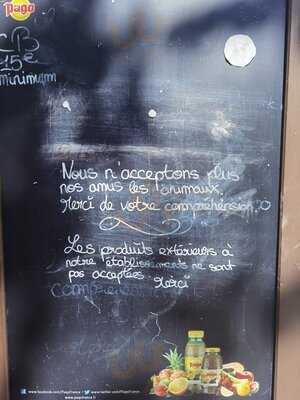 Pago
CB
15€
minimum
Nous n'acceptons plus
nos amis les animaux.
Merci de votre compréhension.
Les produits extérieurs à
notre établissements ne sont
pas acceptées.
Merci
www.facebook.com/PagoFrance
www.twitter.com/PagoFrance
www.pagofrance.fr